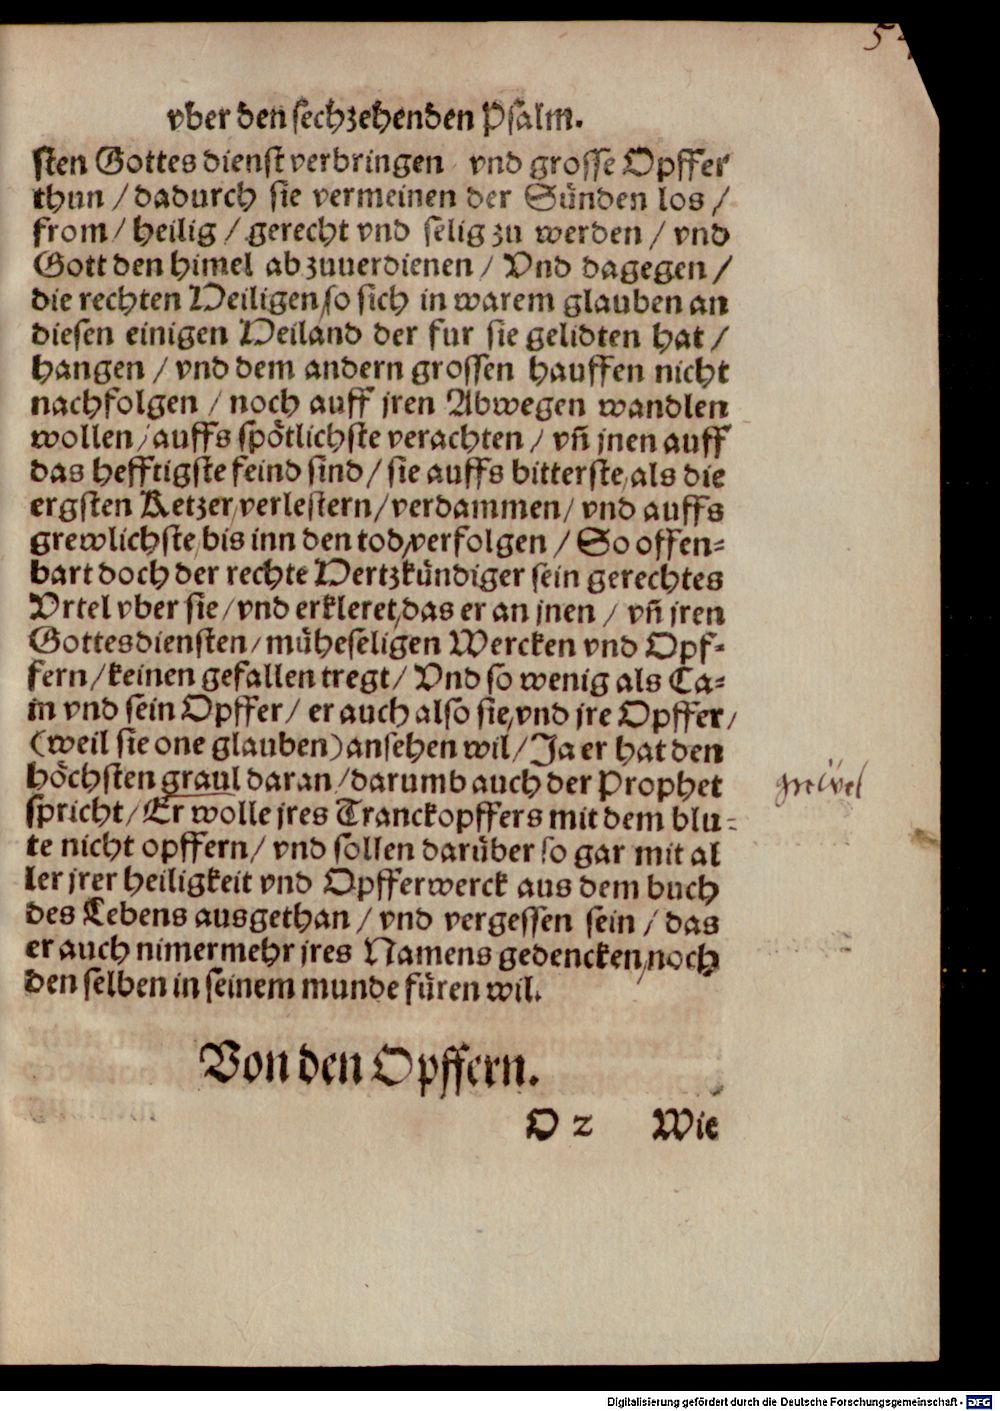 vber den sechzehenden Psalm.
sten Gottes dienst verbringen vnd grosse Opffer
thun / dadurch sie vermeinen der Sünden los /
from / heilig / gerecht vnd selig zu werden / vnd
Gott den himel abzuuerdienen / Vnd dagegen /
die rechten Heiligen / so sich in warem glauben an
diesen einigen Heiland der fur sie gelidten hat /
hangen / vnd dem andern grossen hauffen nicht
nachfolgen / noch auff jren Abwegen wandlen
wollen / auffs spötlichste verachten / vñ jnen auff
das hefftigste feind sind / sie auffs bitterste / als die
ergsten Ketzer / verlestern / verdammen / vnd auffs
grewlichste / bis inn den tod / verfolgen / So offen⸗
bart doch der rechte Hertzkündiger sein gerechtes
Vrtel vber sie / vnd erkleret / das er an jnen / vñ jren
Gottesdiensten / müheseligen Wercken vnd Opf⸗
fern / keinen gefallen tregt / Vnd so wenig als Ca⸗
in vnd sein Opffer / er auch also sie / vnd jre Opffer /
(weil sie one glauben) ansehen wil / Ja er hat den
höchsten graul daran / darumb auch der Prophet
grëvel
spricht / Er wolle jres Tranckopffers mit dem blu⸗
te nicht opffern / vnd sollen darüber so gar mit al
ler jrer heiligkeit vnd Opfferwerck aus dem buch
des Lebens ausgethan / vnd vergessen sein / das
er auch nimermehr jres Namens gedencken / noch
den selben in seinem munde füren wil.
Von den Opffern.
O 2 Wie
Digitalisierung gefördert durch die Deutsche Forschungsgemeinschaft - DFG